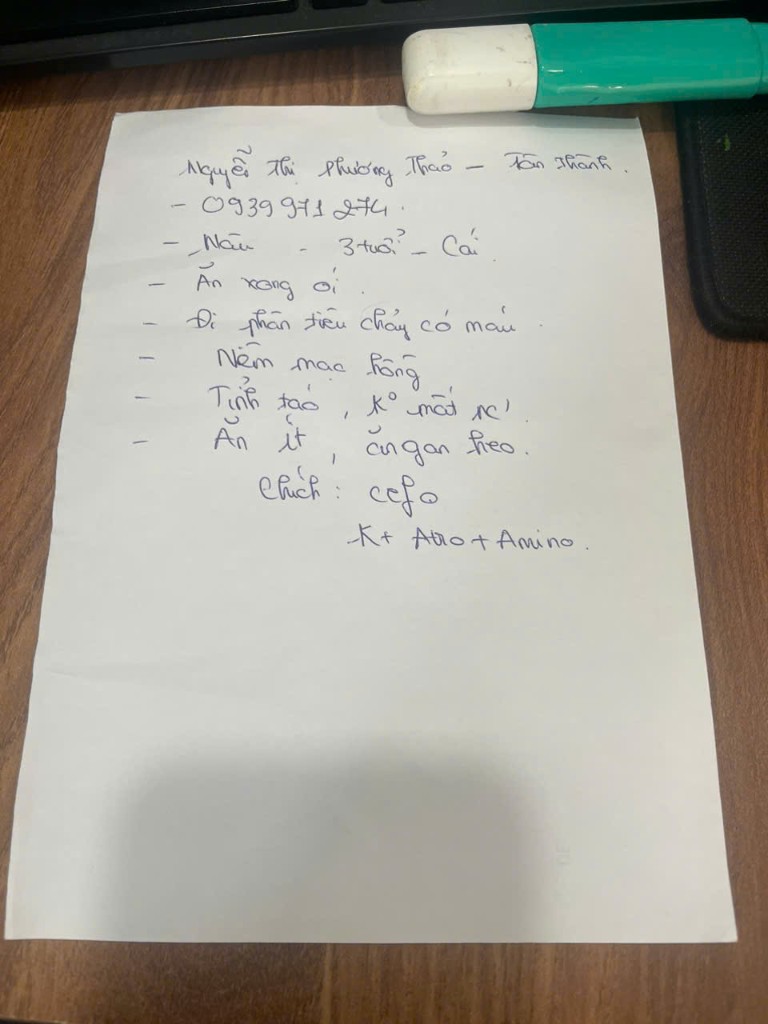 Nguyễn Thị Phương Thảo - Tân Thành.
- 0939 971 274.
- Nâu - 3 tuổi - Cái
- Ăn xong ói.
- Đi phân tiêu chảy có máu.
- Niêm mạc hồng
- Tỉnh táo, K° mất nc'.
- Ăn ít, ăn gan heo.
Chích: cefo
K + Atro + Amino.